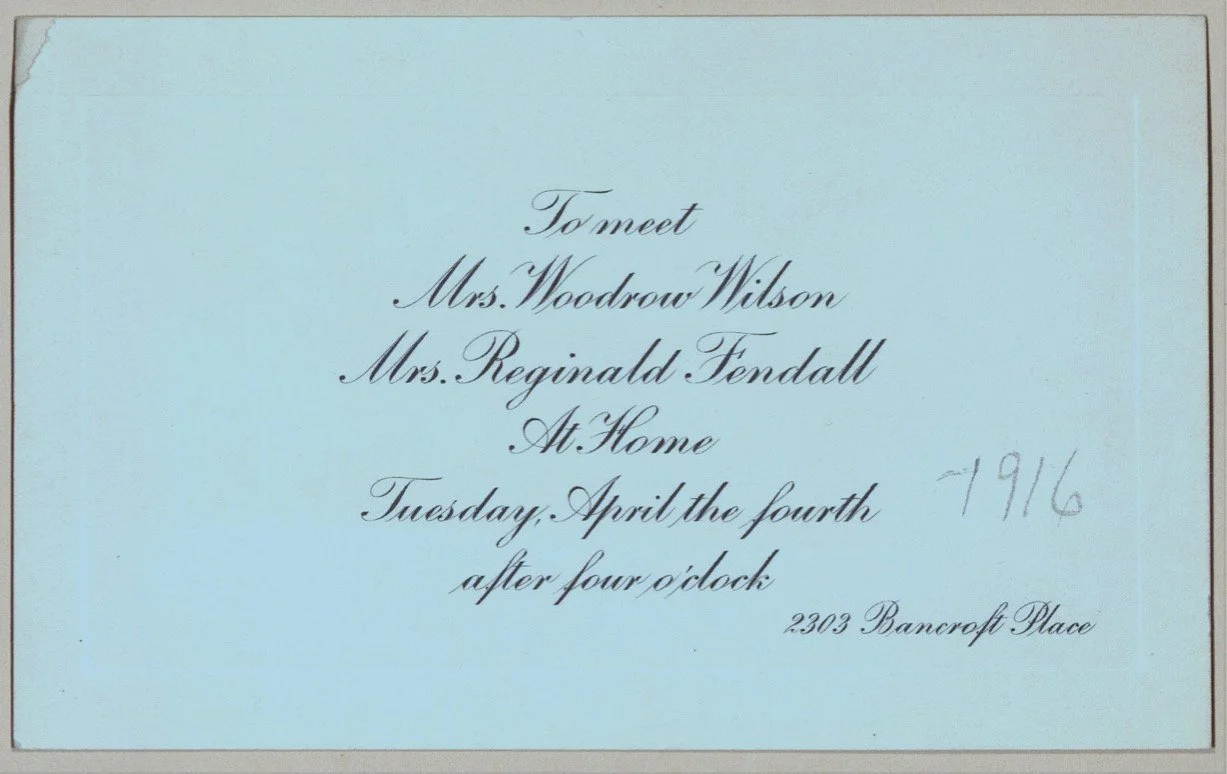 To meet
Mrs. Woodrow Wilson
Mrs. Reginald Fendall
At Home
Tuesday, April the fourth
-1916
after four o'clock
2303 Bancroft Place